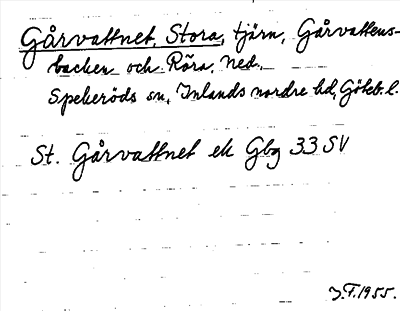 Gårvattnet, Stora, tjärn, Gårvattens-
backen och Röra, Ned.
Spekeröds sn, Inlands nordre hd, Göteb. l.
St. Gårvattnet ek Gbg 33 SV
J.F. 1955.